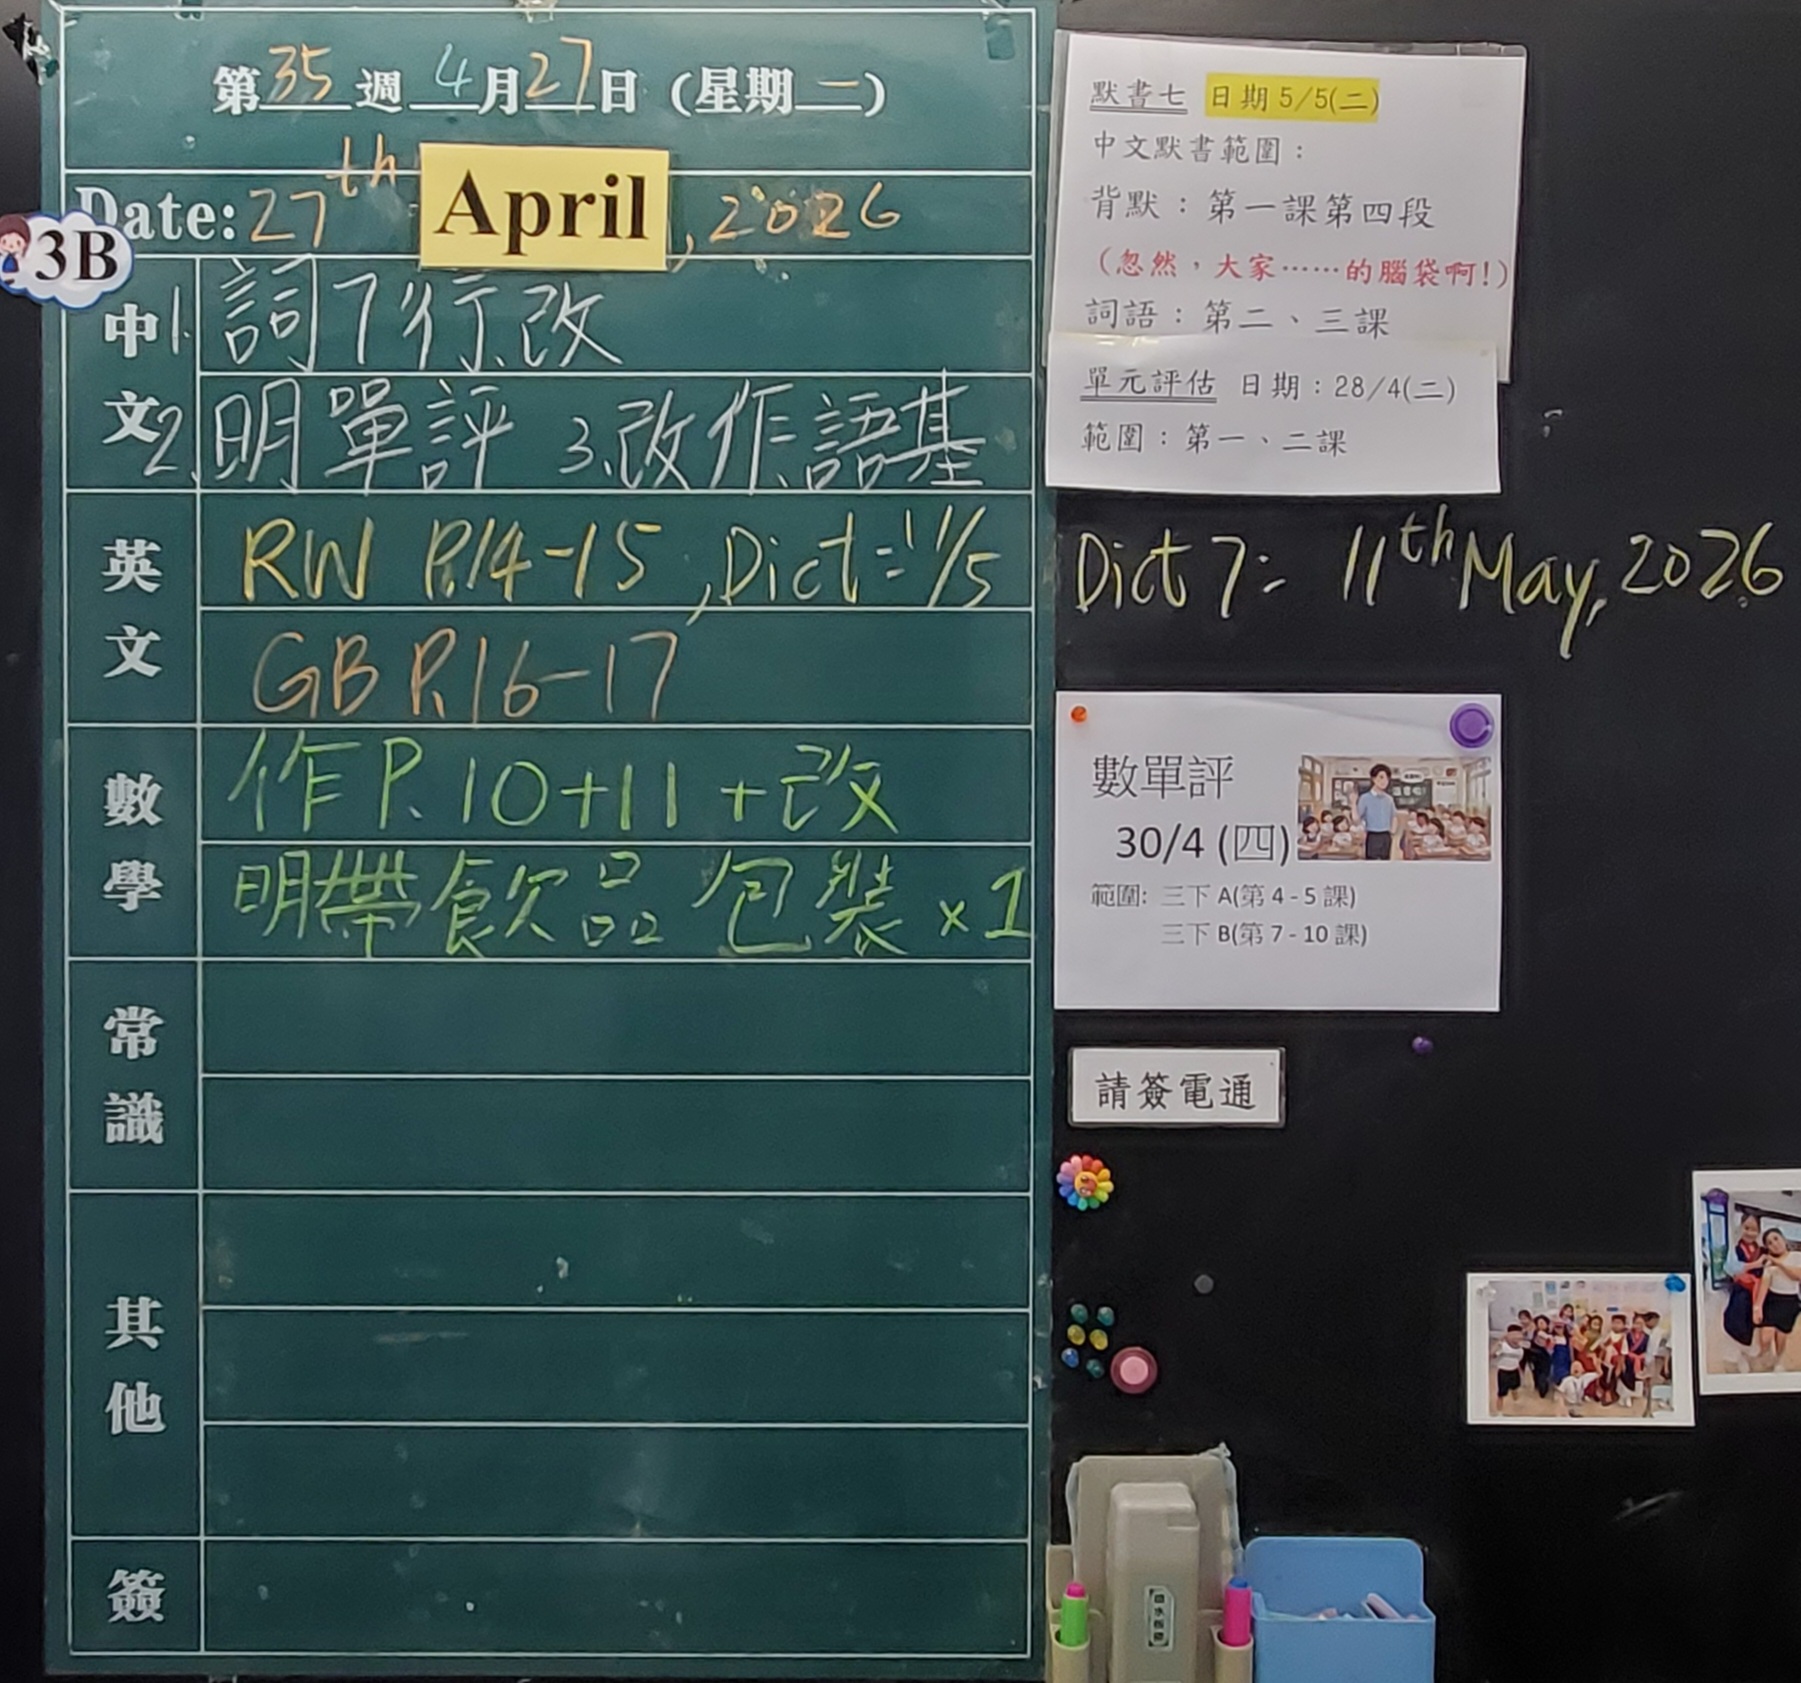 第35週 4月27日(星期一)
Date: 27th April, 2026
3B
中文
1. 詞7行.改
2. 明單評 3.改作.語基
英文
RW P.14-15, Dict: 11/5
GB P.16-17
數學
作 P.10+11 + 改
明帶飲品包裝 x1
常識
其他
簽
默書七 日期5/5(二)
中文默書範圍：
背默：第一課第四段
（忽然，大家……的腦袋啊！）
詞語：第二、三課
單元評估 日期：28/4(二)
範圍：第一、二課
Dict 7: 11th May, 2026
數單評
30/4 (四)
範圍: 三下 A(第 4 - 5 課)
三下 B(第 7 - 10 課)
請簽電通